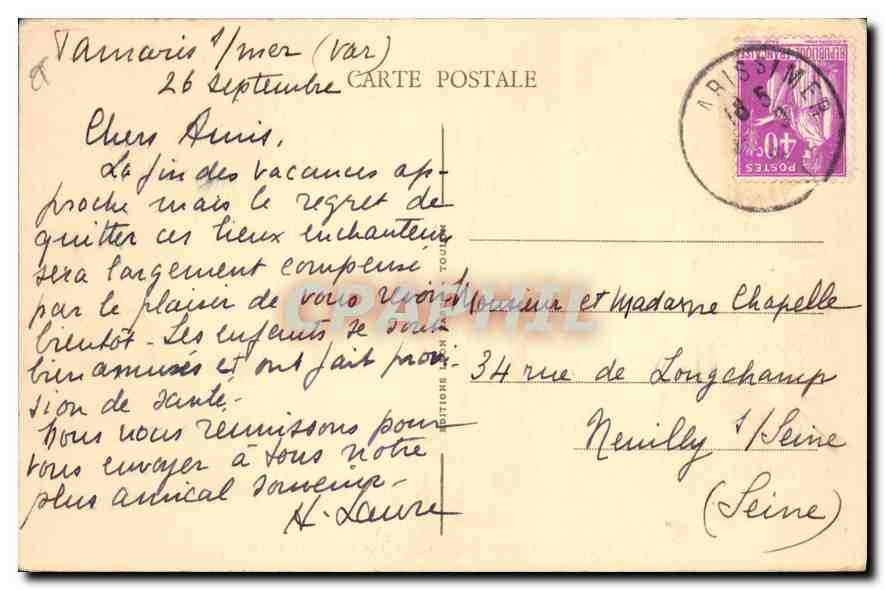 Tamaris s/mer (Var)
26 septembre
CARTE POSTALE
Chers Amis,
La fin des vacances ap-
proche mais le regret de
quitter ces lieux enchanteurs
sera largement compensé
par le plaisir de vous revoir
bientôt - Les enfants se sont
bien amusés et ont fait provi-
sion de santé -
Nous nous réunissons pour
vous envoyer à tous notre
plus amical souvenir -
H. Laure
EDITIONS LEON TOULON
CPAPHIL
REPUBLIQUE FRANCAISE
40c
POSTES
18 5
Monsieur et Madame Chapelle
34 rue de Longchamp
Neuilly s/Seine
(Seine)